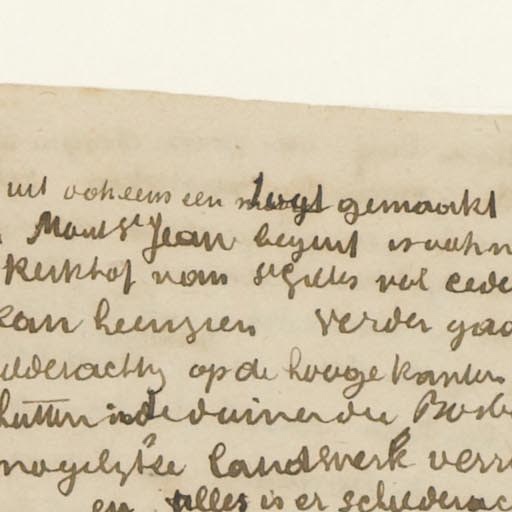 uit ook eens een tocht gemaakt
Mont St Jean begint is ook n
Kerkhof van St Gilles vol cede
kan heenzien Verder gaa
ilderachtig op de hooge kanten
hutten in de duinen die Bosb
mogelijkse landswerk verr
en alles is er schilderac